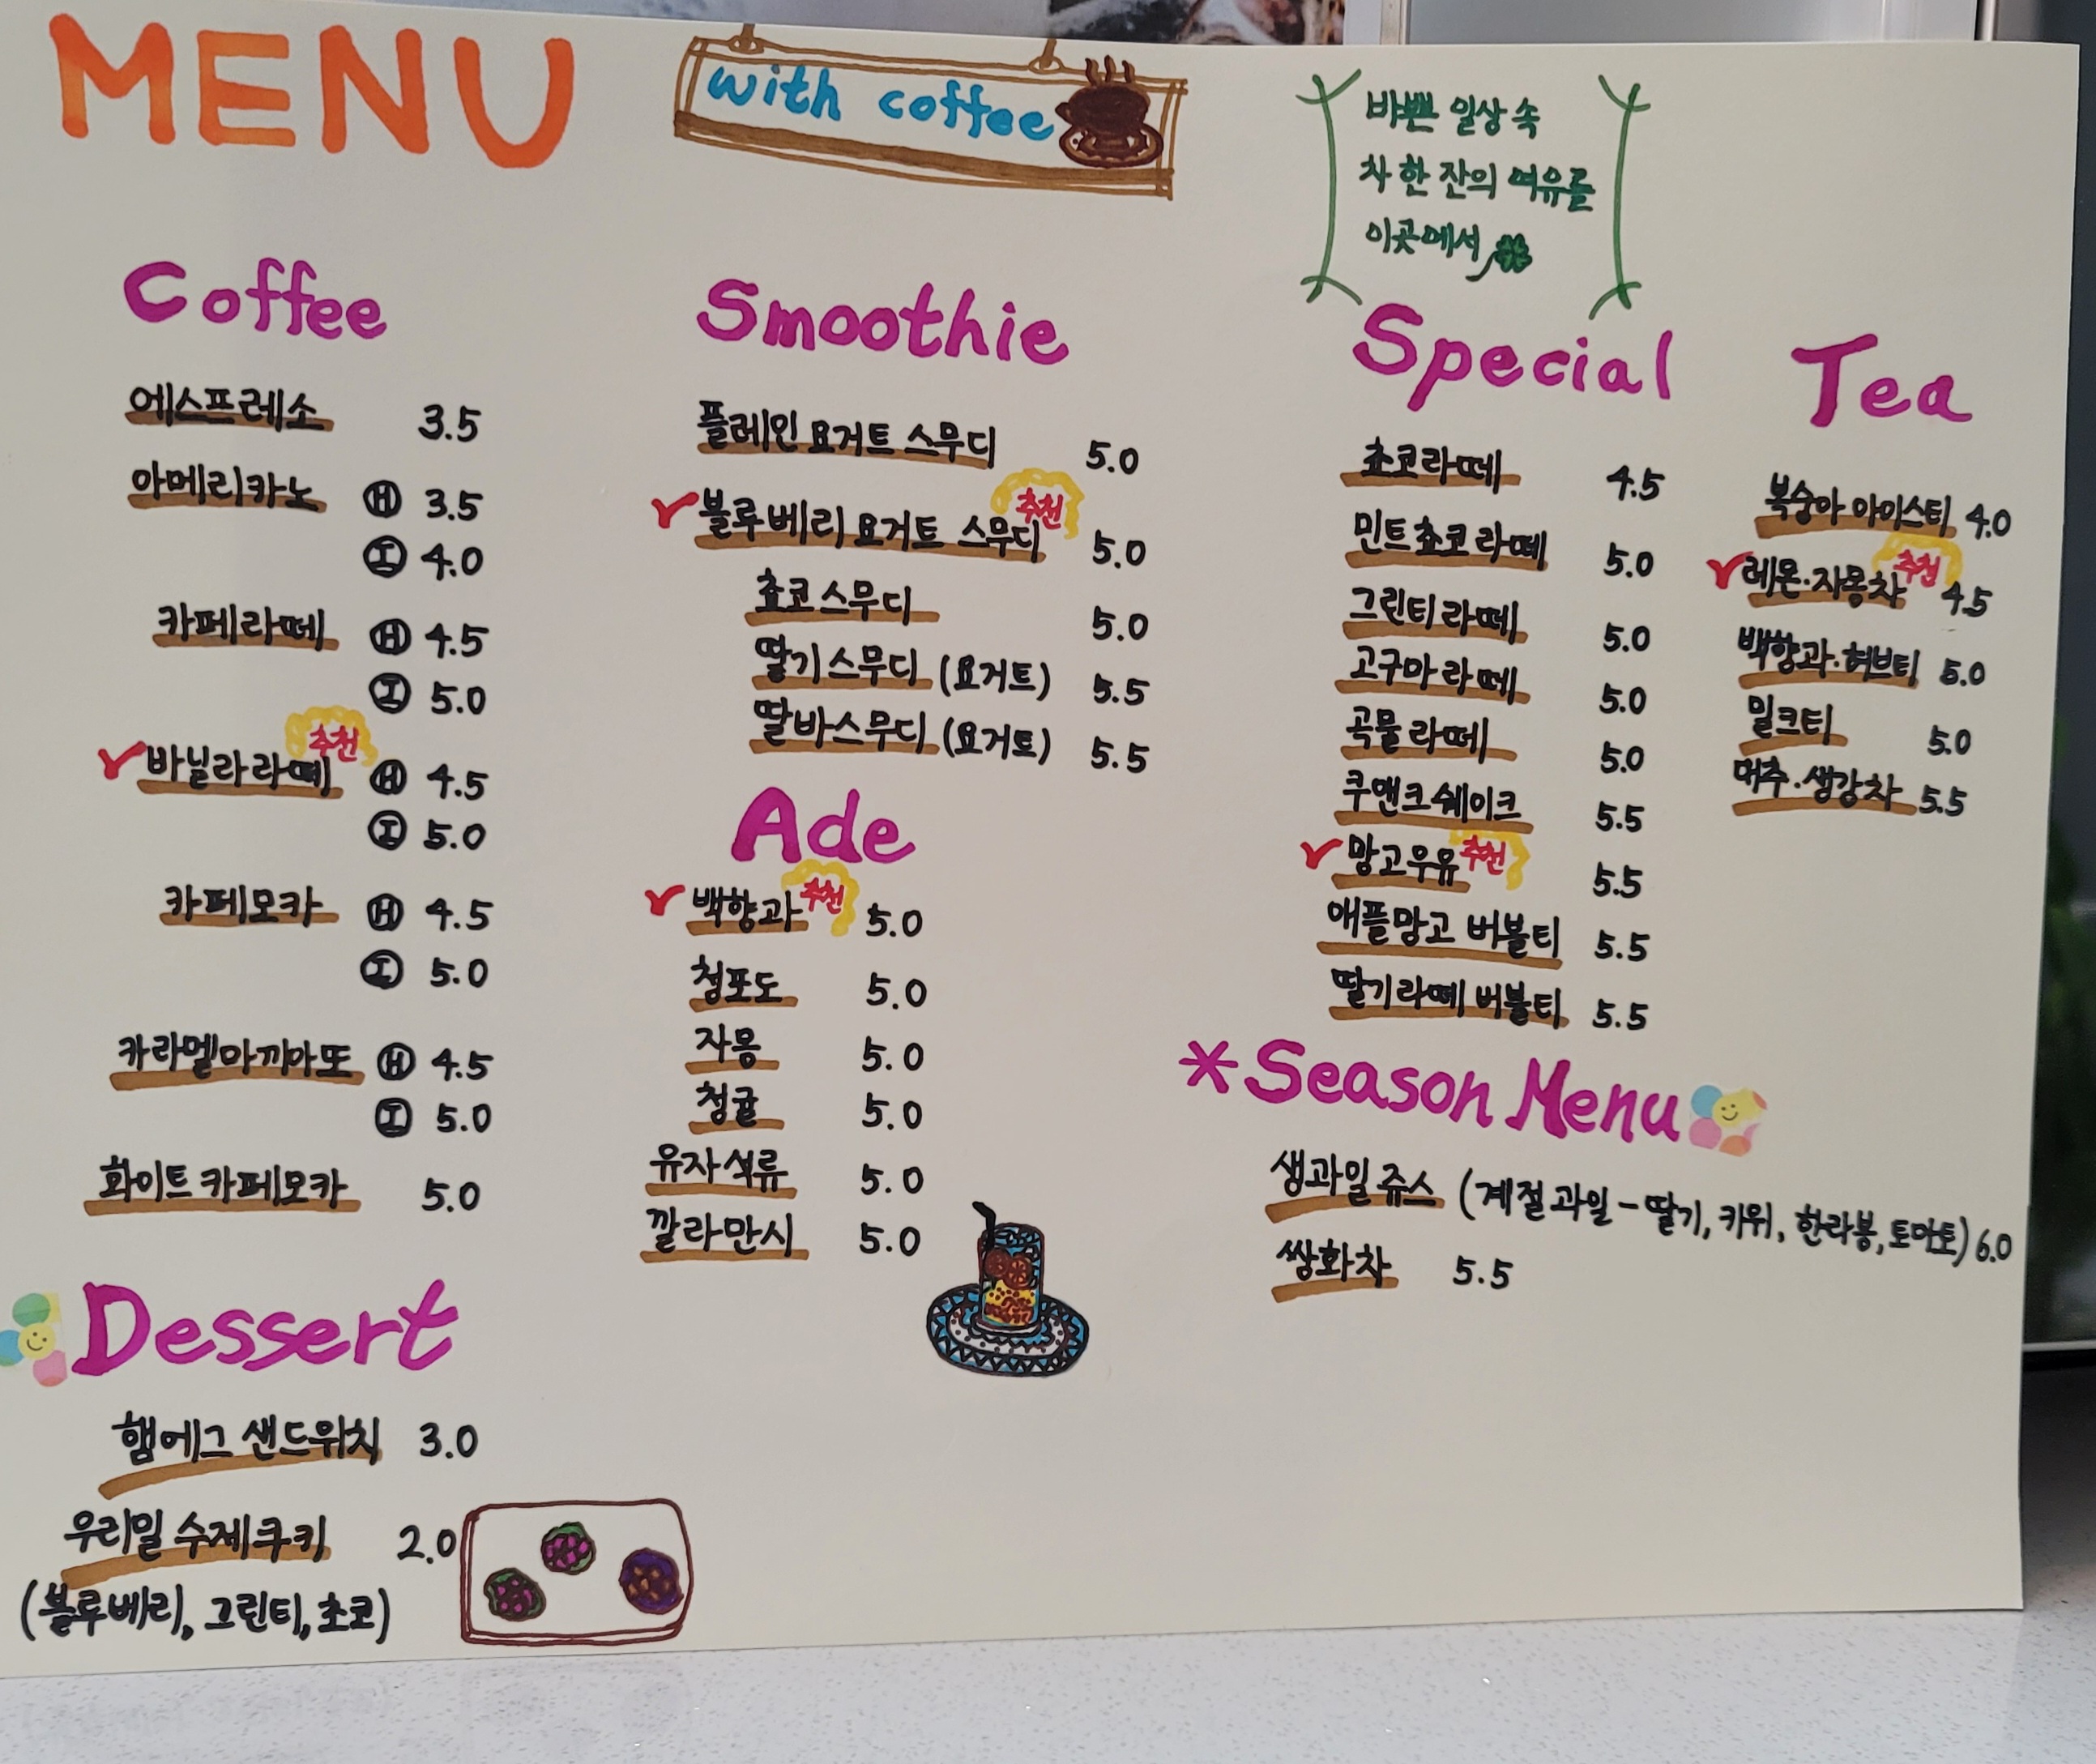 MENU
with coffee
바쁜 일상 속
차 한 잔의 여유를
이곳에서
Coffee
에스프레소 3.5
아메리카노 H 3.5
I 4.0
카페라떼 H 4.5
I 5.0
추천
✓바닐라라떼 H 4.5
I 5.0
카페모카 H 4.5
I 5.0
카라멜마끼아또 H 4.5
I 5.0
화이트카페모카 5.0
Dessert
햄에그 샌드위치 3.0
우리밀 수제쿠키 2.0
(블루베리, 그린티, 초코)
Smoothie
플레인 요거트 스무디 5.0
추천
✓블루베리 요거트 스무디 5.0
쵸코스무디 5.0
딸기스무디 (요거트) 5.5
딸바스무디 (요거트) 5.5
Ade
✓백향과 추천 5.0
청포도 5.0
자몽 5.0
청귤 5.0
유자석류 5.0
깔라만시 5.0
Special
쵸코라떼 4.5
민트쵸코라떼 5.0
그린티라떼 5.0
고구마라떼 5.0
곡물라떼 5.0
쿠앤크쉐이크 5.5
✓망고우유 추천 5.5
애플망고 버블티 5.5
딸기라떼 버블티 5.5
Tea
복숭아 아이스티 4.0
✓레몬·자몽차 추천 4.5
백향과·허브티 5.0
밀크티 5.0
대추·생강차 5.5
*Season Menu
생과일쥬스 (계절과일-딸기, 키위, 한라봉, 토마토) 6.0
쌍화차 5.5